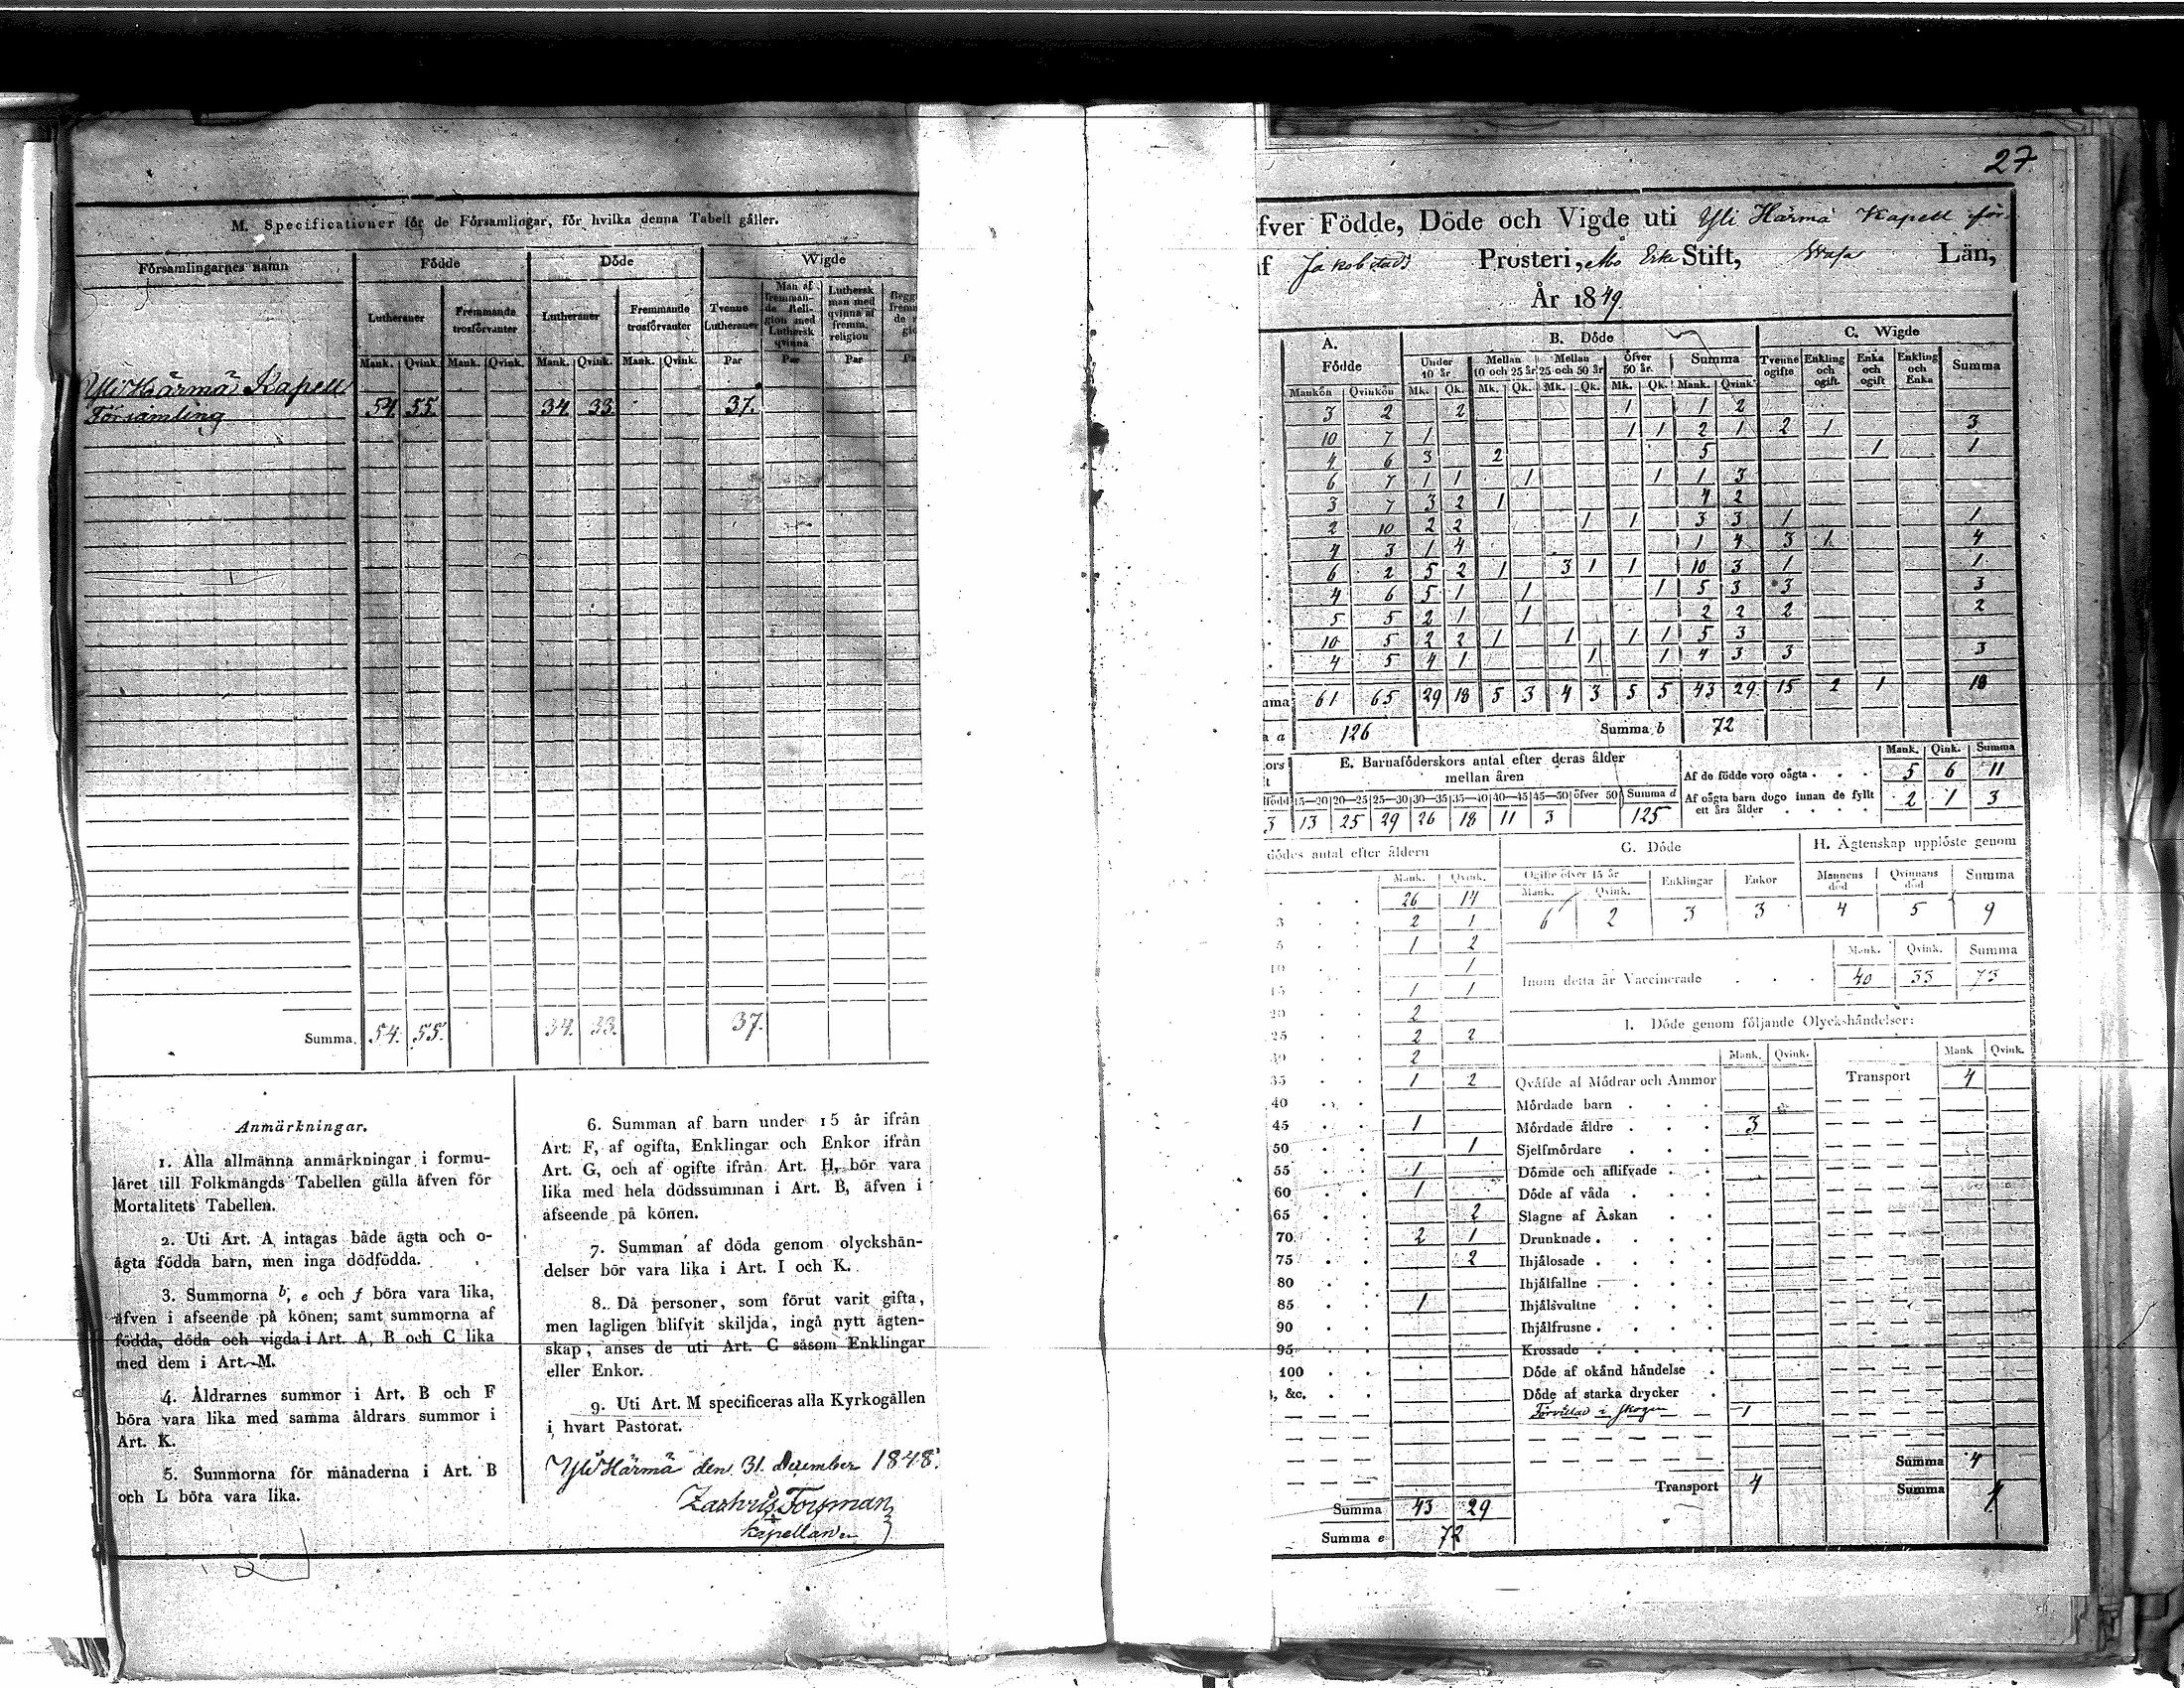 M. Specificationer för de Församlingar, för hvilka denna Tabell gäller.
Församlingarnes namn Födde Döde Wigde
Lutheraner Fremmande trosförvanter Lutheraner Fremmande trosförvanter Tvenne Lutheraner Man af fremmande Religion med Luthersk qvinna Luthersk man med qvinna af fremm. religion
Mank. Qvink. Mank. Qvink. Mank. Qvink. Mank. Qvink. Par Par Par
Yli Härmä Kapell
Församling 54. 55. 34. 33. 37.
Summa. 54. 55. 34. 33. 37.
Anmärkningar.
1. Alla allmänna anmärkningar i formu-
läret till Folkmängds Tabellen gälla äfven för
Mortalitets Tabellen.
2. Uti Art. A intagas både ägta och o-
ägta födda barn, men inga dödfödda.
3. Summorna b, e och f böra vara lika,
äfven i afseende på könen; samt summorna af
födda, döda och vigda i Art. A, B och C lika
med dem i Art. M.
4. Åldrarnes summor i Art. B och F
böra vara lika med samma åldrars summor i
Art. K.
5. Summorna för månaderna i Art. B
och L böra vara lika.
6. Summan af barn under 15 år ifrån
Art. F, af ogifta, Enklingar och Enkor ifrån
Art. G, och af ogifte ifrån Art. H, bör vara
lika med hela dödssumman i Art. B, äfven i
afseende på könen.
7. Summan af döda genom olyckshän-
delser bör vara lika i Art. I och K.
8. Då personer, som förut varit gifta,
men lagligen blifvit skiljda, ingå nytt ägten-
skap, anses de uti Art. C såsom Enklingar
eller Enkor.
9. Uti Art. M specificeras alla Kyrkogällen
i hvart Pastorat.
Yli Härmä den 31. December 1848.
Zachris Forsman
Kapellan
27
fver Födde, Döde och Vigde uti Yli Härmä Kapell för-
af Jakobstads Prosteri, Åbo Erke Stift, Wasa Län,
År 1849
A. Födde B. Döde C. Wigde
Under 10 år Mellan 10 och 25 år Mellan 25 och 50 år Öfver 50 år. Summa Tvenne ogifte Enkling och ogift Enka och ogift Enkling och Enka Summa
Mankön Qvinkön Mk. Qk. Mk. Qk. Mk. Qk. Mk. Qk. Mank. Qvink.
3 2 2 1 1 2
10 7 1 1 1 2 1 2 1 3
4 6 3 2 5 1 1
6 7 1 1 1 1 1 3
3 7 3 2 1 4 2
2 10 2 2 1 1 3 3 1 1
4 3 1 4 1 4 3 1 4
6 2 5 2 1 3 1 1 10 3 1 1
4 6 5 1 1 1 5 3 3 3
5 5 2 1 1 2 2 2 2
10 5 2 2 1 1 1 1 5 3
4 5 4 1 1 1 4 3 3 3
61 65 29 18 5 3 4 3 5 5 43 29 15 2 1 18
a 126 Summa b 72
E. Barnaföderskors antal efter deras ålder
mellan åren
15—20 20—25 25—30 30—35 35—40 40—45 45—50 öfver 50 Summa d
3 13 25 29 26 18 11 3 125
Mank. Qink. Summa
Af de födde voro oägta 5 6 11
Af oägta barn dogo innan de fyllt
ett års ålder 2 1 3
dödes antal efter åldern
Mank. Qvink.
26 14
3 2 1
5 1 2
10 1
15 1 1
20 2
25 2 2
30 2
35 1 2
40
45 1
50 1
55 1
60 1
65 2
70 2 1
75 2
80
85 1
90
95
100
&c.
Summa 43 29
Summa e 72
G. Döde
Ogifte öfver 15 år Enklingar Enkor
Mank. Qvink.
6 2 3 3
H. Ägtenskap upplöste genom
Mannens död Qvinnans död Summa
4 5 9
Mank. Qvink. Summa
Inom detta år Vaccinerade 40 33 73
I. Döde genom följande Olyckshändelser:
Mank. Qvink. Mank Qvink.
Qväfde af Mödrar och Ammor Transport 4
Mördade barn
Mördade äldre 3
Sjelfmördare
Dömde och aflifvade
Döde af våda
Slagne af Åskan
Drunknade
Ihjälosade
Ihjälfallne
Ihjälsvultne
Ihjälfrusne
Krossade
Döde af okänd händelse
Döde af starka drycker
Förvillad i skogen 1
Summa 4
Transport 4 Summa 4